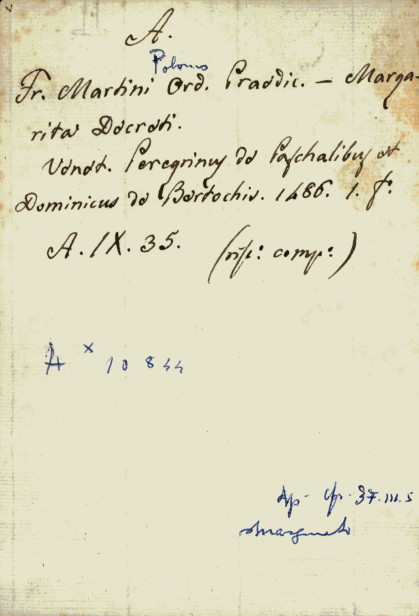 A.
Polonus
Fr. Martini Ord. Praedic. — Marga-
rita Decreti.
Venet. Peregrinus de Paschalibus et
Dominicus de Bertochis. 1486. 1. f°.
A. IX. 35. (rip: comp:)
A x 10844
37. III. 5